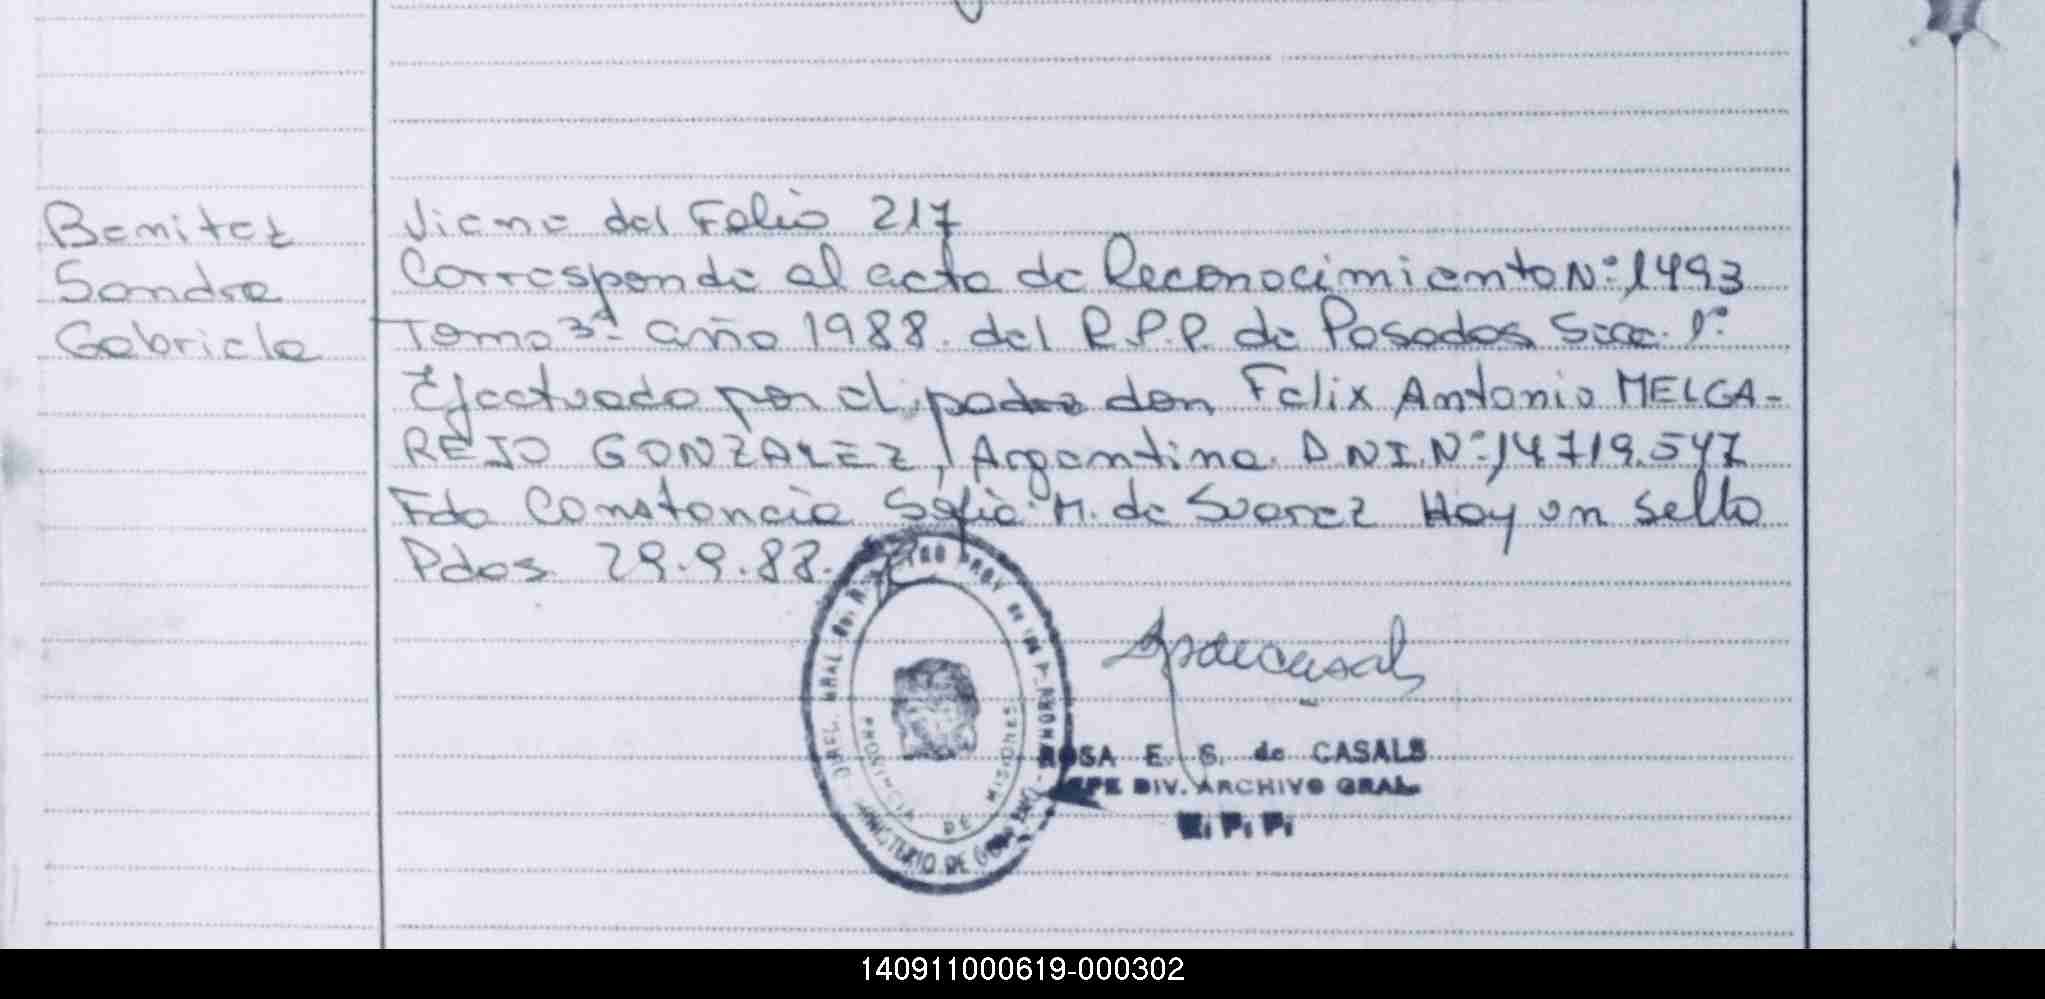 Benitez
Sandra
Gabriela
Viene del Folio 217
Corresponde al acta de Reconocimiento Nº 1493
Tomo 3º año 1988. del R.P.P. de Posadas Secc. 1º
Efectuado por el padre don Felix Antonio MELGA-
REJO GONZALEZ, Argentino. D.N.I. Nº 14.719.547
Fdo Constancia Sofia M. de Suarez Hay un sello
Pdas 29.9.88.
PROVINCIA DE MISIONES
MINISTERIO DE
ROSA E. S. de CASALS
JEFE DIV. ARCHIVO GRAL.
R. P. P.
140911000619-000302